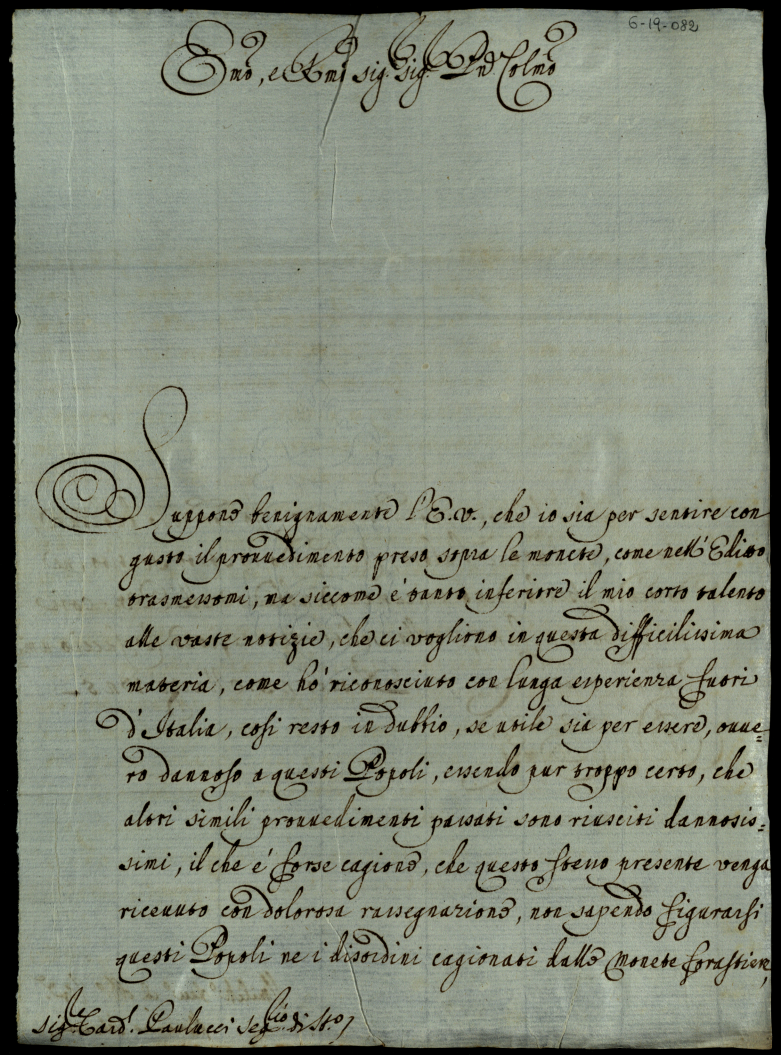 6-19-082
Emo, e Rmo sig. sig. Pnē Colmo
Suppone benignamente l'E.V., che io sia per sentire con
gusto il provuedimento preso sopra le monete, come nell'Editto
trasmessomi, ma siccome é tanto inferiore il mio corto talento
alle vaste notizie, che ci vogliono in questa difficilissima
materia, come hó riconosciuto con lunga esperienza fuori
d'Italia, cosi resto in dubbio, se utile sia per essere, ouue=
ro dannoso a questi Popoli, essendo pur troppo certo, che
altri simili prouuedimenti passati sono riusciti dannosis=
simi, il che é forse cagione, che questo stesso presente venga
riceuuto con dolorosa rassegnazione, non sapendo figurarsi
questi Popoli ne i disordini cagionati dalle Monete forastiere,
sig.re Card.l Paulucci seg.rio di Sto